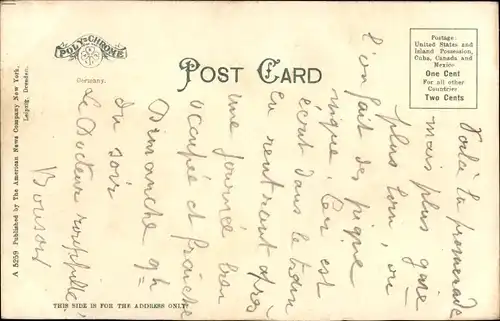 POLY-CHROME
Germany.
POST CARD
Postage:
United States and
Island Possession,
Cuba, Canada and
Mexico
One Cent
For all other
Countries
Two Cents
A 5259 Published by The American News Company New York,
Leipzig, Dresden.
Voilà la promenade
mais plus gaie
plus loin, ou
l'on fait des pique
nique. Ceci est
écrit dans le train
en rentrant après
une journée bien
occupée et fraîche
Dimanche 9h
du soir
Le Docteur
Bonsoir
THIS SIDE IS FOR THE ADDRESS ONLY